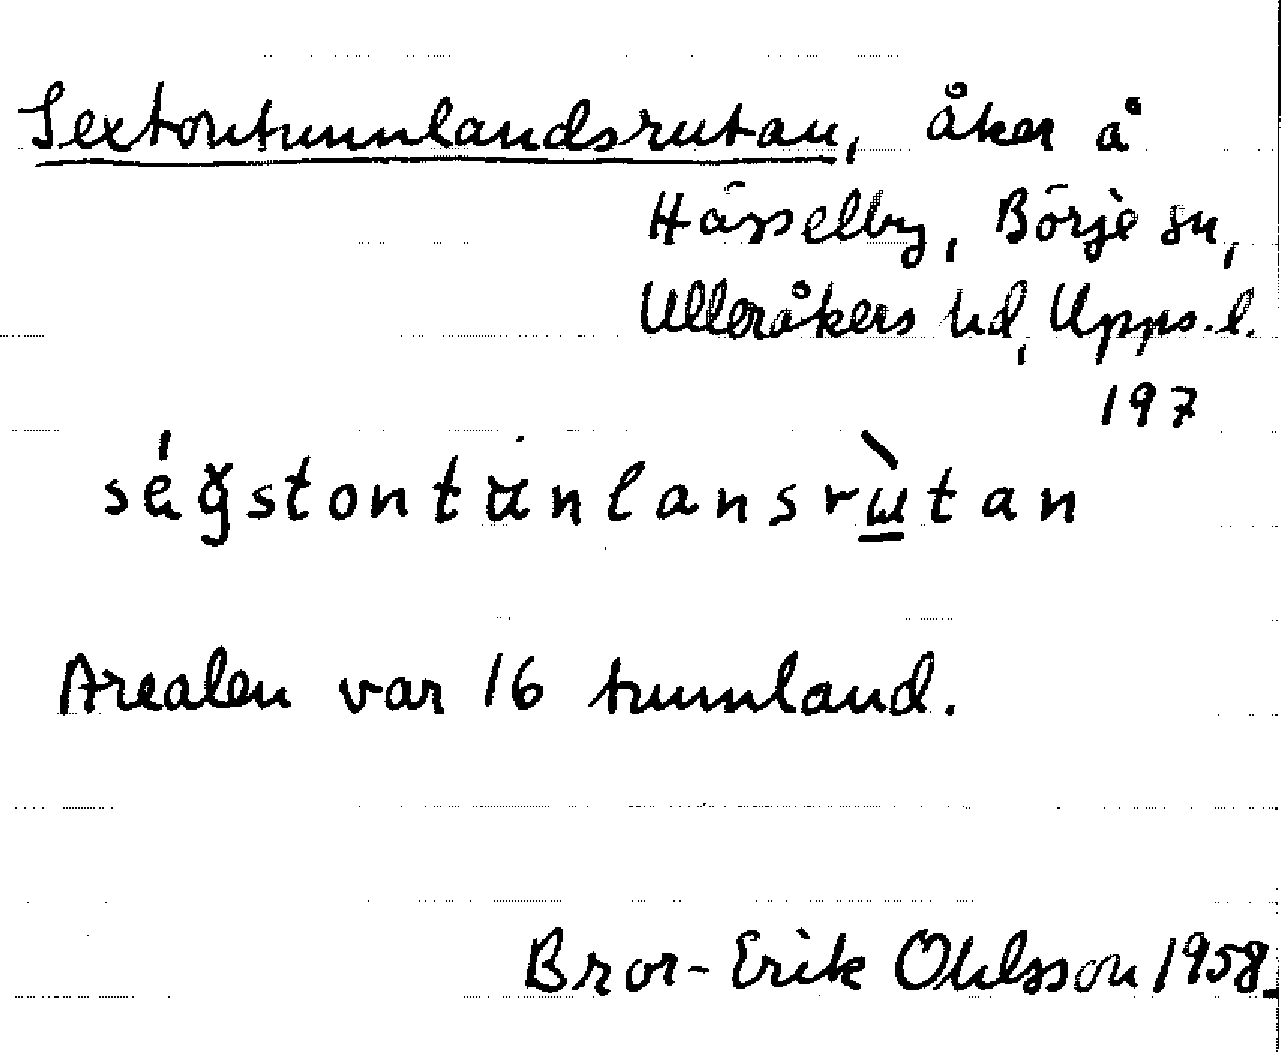 Sextontunnlandsrutan, åker å
Hässelby, Börje sn,
Ulleråkers hd, Upps. l.
197
ségstontunlansrùtan
Arealen var 16 tunnland.
Bror-Erik Ohlsson 1958